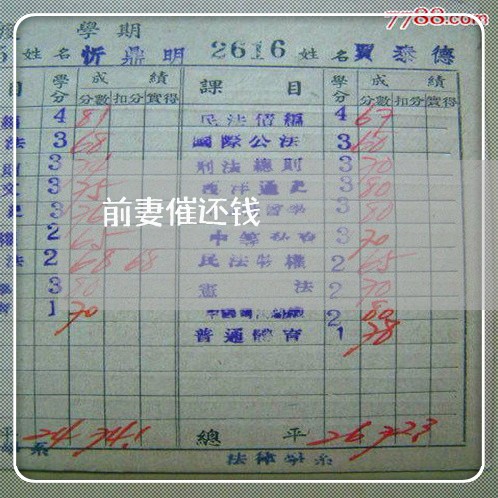 7788.com
學期
姓名 忻鼎明 2616 姓名 賈泰德
目 學分 成績 課目 學分 成績
分數 扣分 實得 分數 扣分 實得
4 81 民法債編 4 67
法 3 68 國際公法 3 60
3 刑法總則 3 70
3 75 西洋通史 3 80
3 3 80
前妻催还钱
2 65 3 70
法 2 68 68 民法物權 2 65
3 80 憲法 2 70
1 70 2 80
普通體育 1 78
平 24 74.1 總平 26 72.3
系 法律學系